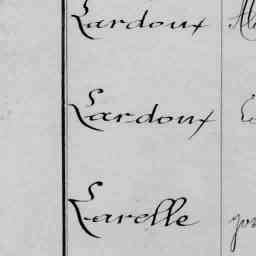 Lardoux
Lardoux
Larelle